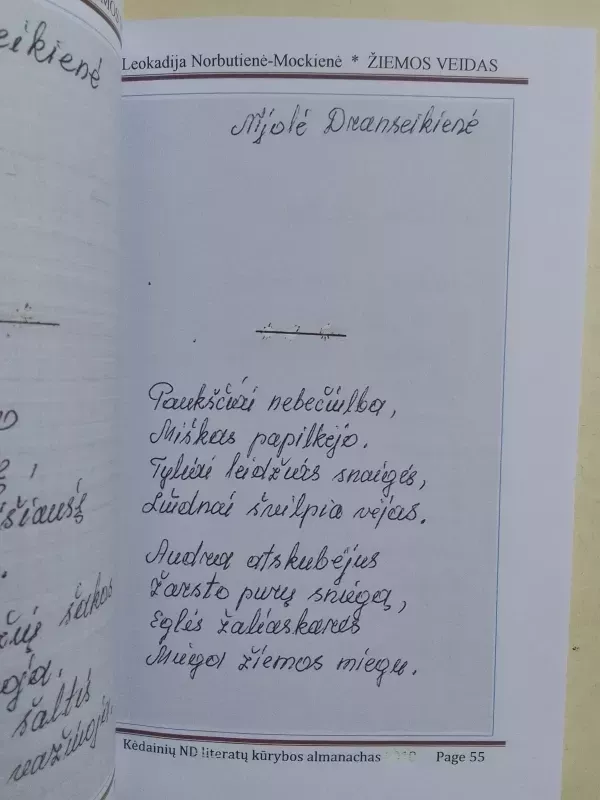 eikienė
Leokadija Norbutienė-Mockienė * ŽIEMOS VEIDAS
Nijolė Dranseikienė
Paukščiai nebečiulba,
Miškas papilkėjo.
Tyliai leidžias snaigės,
Liūdnai švilpia vėjas.
Audra atskubėjus
Žarsto purų sniegą,
Eglės žaliaskarės
Miega žiemos miegu.
šakos
šaltis
Kėdainių ND literatų kūrybos almanachas Page 55